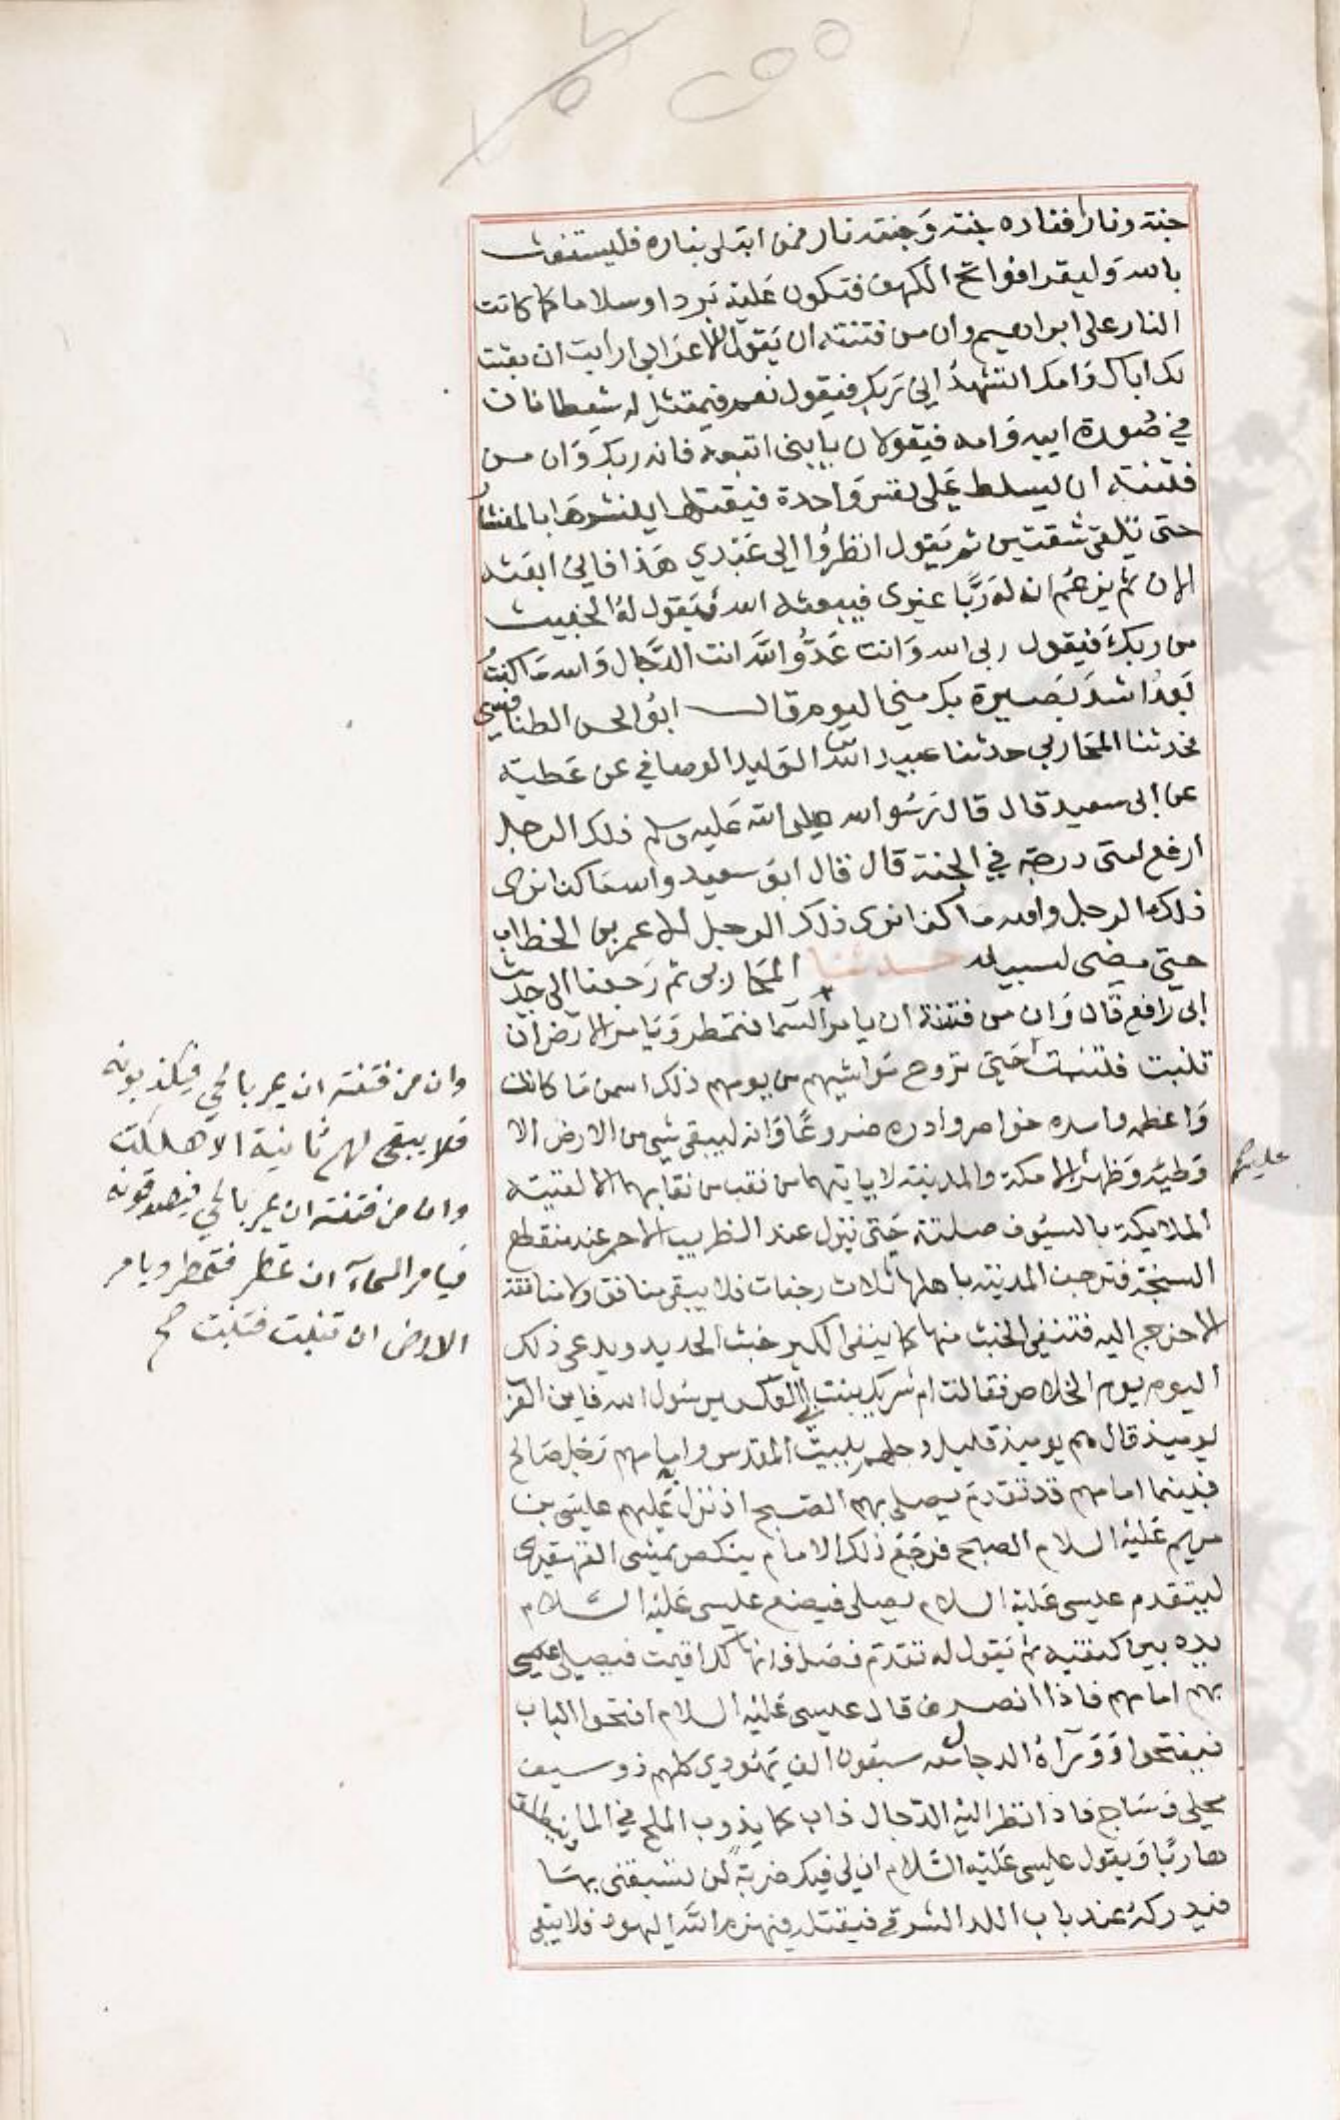 جنة ونارا فناره جنة وجنته نار فمن ابتلى بناره فليستغث
بالله وليقرا فواتح الكهف فتكون عليه بردا وسلاما كما كانت
النار على ابراهيم وان من فتنته ان يقول لاعرابي ارايت ان بعثت
لك اباك وامك اتشهد اني ربك فيقول نعم فيمتثل له شيطانان
في صورة ابيه وامه فيقولان يابني اتبعه فانه ربك وان من
فتنته ان يسلط على نفس واحدة فيقتلها ينشرها بالمنشار
حتى يلقى شقتين ثم يقول انظروا الى عبدي هذا فاني ابعثه
الان ثم يزعم ان له ربا غيري فيبعثه الله فيقول له الخبيث
من ربك فيقول ربي الله وانت عدو الله انت الدجال والله ما كنت
بعد اشد بصيرة بك مني اليوم قال ابو الحسن الطنافسي
فحدثنا المحاربي حدثنا عبيد الله بن الوليد الوصافي عن عطية
عن ابي سعيد قال قال رسول الله صلى الله عليه وسلم ذلك الرجل
ارفع امتي درجة في الجنة قال قال ابو سعيد والله ما كنا نرى
ذلك الرجل والله ما كنا نرى ذلك الرجل الا عمر بن الخطاب
حتى مضى لسبيله حدثنا المحاربي ثم رجعنا الى حديث
ابي رافع قال وان من فتنة ان يامر السما فتمطر ويامر الارض ان
تنبت فتنبت حتى تروح مواشيهم من يومهم ذلك اسمن ما كانت
واعظمه وامده خواصر وادره ضروعا وانه لا يبقى شي من الارض الا
وطيه وظهر الا مكة والمدينة لا ياتيهما من نقب من نقابهما الا لقيته
عليهم
الملايكة بالسيوف صلتة حتى ينزل عند الظريب الاحمر عند منقطع
السبخة فترجف المدينة باهلها ثلاث رجفات فلا يبقى منافق ولا منافقة
الا خرج اليه فتنفي الخبث منها كما ينفي الكير خبث الحديد ويدعى ذلك
اليوم يوم الخلاص فقالت ام شريك بنت ابي العكر يرسول الله فاين العرب
يوميذ قال هم يوميذ قليل وجلهم ببيت المقدس وامامهم رجل صالح
فبينما امامهم قد تقدم يصلي بهم الصبح اذ نزل عليهم عيسى بن
مريم عليه السلام الصبح فرجع ذلك الامام ينكص يمشي القهقرى
ليتقدم عيسى عليه السلام يصلي فيضع عيسى عليه السلام
يده بين كتفيه ثم يقول له تقدم فصل فانها لك اقيمت فيصلي عيسى
بهم امامهم فاذا انصرف قال عيسى عليه السلام افتحوا الباب
فيفتحوا ووراه الدجال معه سبعون الف يهودي كلهم ذو سيف
محلى وساج فاذا نظر اليه الدجال ذاب كما يذوب الملح في الما وينطلق
هاربا ويقول عيسى عليه السلام ان لي فيك ضربة لن تسبقني بها
فيدركه عند باب اللد الشرقي فيقتله فيهزم الله اليهود فلا يبقى
وان من فتنته ان يمر بالحي فيكذبونه
فلا يبقى لهم ثانية الا هلكت
وان من فتنته ان يمر بالحي فيصدقونه
فيامر السماء ان تمطر فتمطر ويامر
الارض ان تنبت فتنبت صح